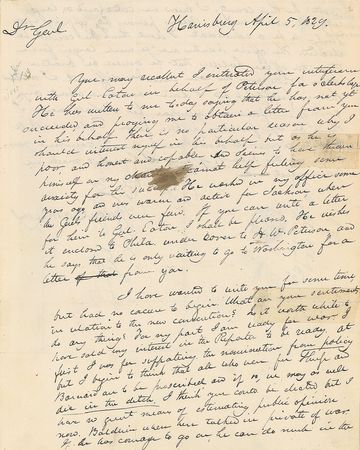 Dr Genl    Harrisburg April 5, 1829.
You may recollect I solicited your interference
with Genl. Eaton in behalf of Peterson for a clerkship
He has written to me today saying that he has not yet
succeeded and praying me to obtain a letter from you
in his behalf. There is no particular reason why I
should interest myself in his behalf but as he is
poor, and honest and capable and claims to have thrown
himself on my I cannot help feeling some
anxiety for his success. He worked in my office some
years ago and very warm and active for Jackson when
the Genls friends were few. If you can write a letter
for him to Genl. Eaton I shall be pleased. He wishes
it enclosed to Phila. under cover to H. W. Peterson and
he says that he is only waiting to go to Washington for a
letter from you.
I have wanted to write you for some time
but had no excuse to begin. What are your sentiments
in relation to the new convention? Is it worth while to
do any thing? For my part I am ready for war. I
have sold my interest in the Reporter to be ready. At
first I was for supporting the nomination from policy
but I begin to think that all who were for Shulze and
Barnard are to be proscribed and if so, we may as well
die in the ditch. I think you could be elected but I
have no great means of estimating public opinion
now. Baldwin when here talked in private of war
& if he has courage to go on he can do much in the